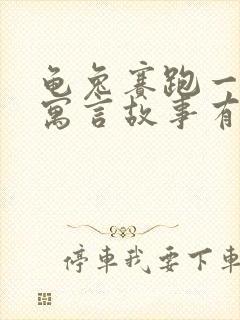 龟兔赛跑一
寓言故事有
停車我要下車